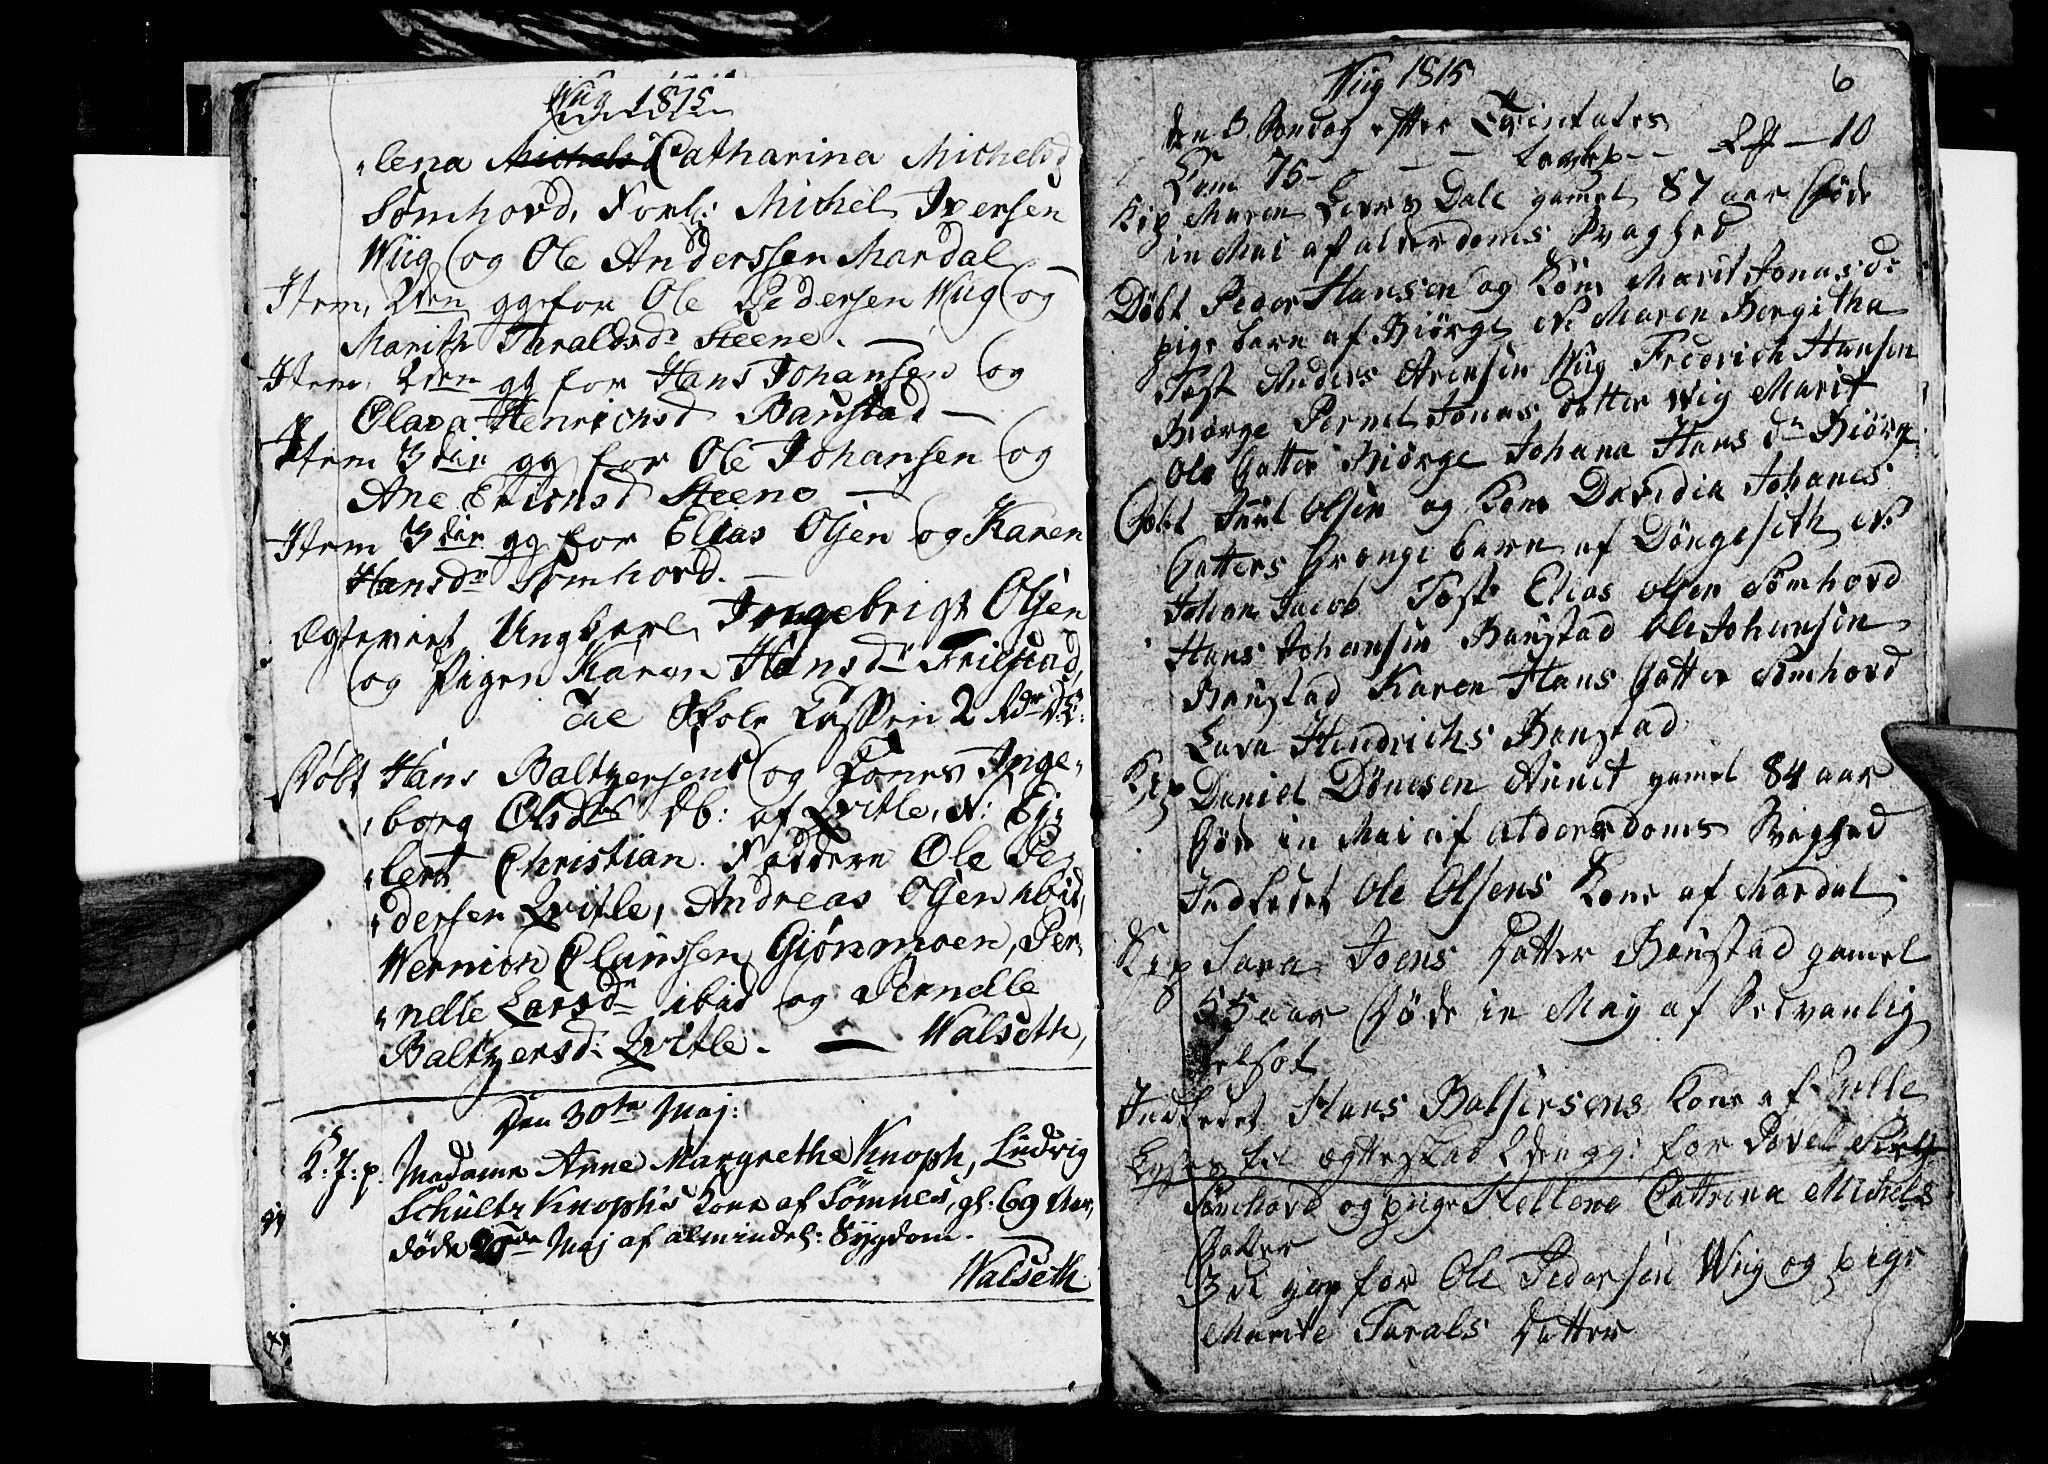 Wiig 1815
lena Michels Catharina Michelsd
Sømhovd, Forl: Michel Iversen
Wiig og Ole Anderssen Mardal
Item, 2den gg for Ole Pedersen Wiig og
Marith Taraldsdr Steene. —
Item, 2den gg for Hans Johansen og
Olava Henrichsd Baustad —
Item 3die gg for Ole Johansen og
Ane Erichsd Steeno —
Item 3die gg for Elias Olsen og Karen
Hansdr Sømhovd. —
Ægteviet Ungkarl Ingebrigt Olsen
og Pigen Karen Hansdr
Til Skole Cassen 2
Døbt Hans Baltzersens og Kones Inge„
„borg Olsdrs db: af Qvitle, N: Ej„
„lert Christian. Faddere Ole Pe„
„dersen Qvitle, Andreas Olsen ibid,
Wernich Claussen Giønmoen, Per„
„nelle Larsdr ibid og Pernelle
Baltzersd: Qvitle. — Walseth,
Den 30te Maj:
K: J: p. Madame Anne Margrethe Knoph, Ludvig
Schultz Knoph's Kone af Sømnes, gl: 69 Aar,
døde Maj af almindel: Sygdom.
Walseth
Wiig 1815
6
den 3 Søndag efter Trinitates
Kom 75 — — — 10
Kip Maren Dale gamel 87 aar Døde
in Mai af alderdoms Svaghed
Døbt Peder Hansen og Kone Marit Jonasd:
pige barn af Biørge N: Maren Bergitha
Test Anders Arensen Wiig Fredrich Hansen
Biørge Pernel Jonas datter Wig Marit
Ole Datter Biørge Johana Hans dr Biørg
Døbt Juul Olsen og Kone Davidia Johanes
Datters Drænge barn af Døngeseth N:
Johan Jacob Test Elias Olsen Sømhovd
Hans Johansen Baustad Ole Johansen
Baustad Karen Hans Datter Sømhovd
Lava Hendrichs Baustad
Kip Daniel Dønesen gamel 84 aar
Døde in Mai af alderdoms Svaghed
Indledet Ole Olsens Kone af Mardal
Kip Sara Joens Datter Baustad gamel
55 aar Døde in May af

Indledet Hans Baltsersens Kone af
Lyses til ægteskab 2den gg: for Povel
Sømhovd og pige Hellena Cattrina Michels
Datter
3de gang for Ole Pedersen Wiig og pige
Marite Tarals Datter